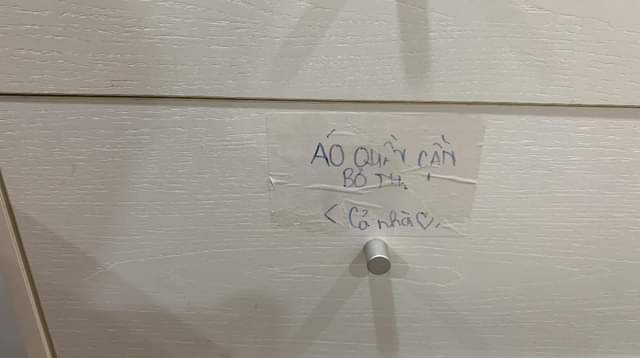 ÁO QUẦN CẦN
BỎ TH.
< Cả nhà♡,